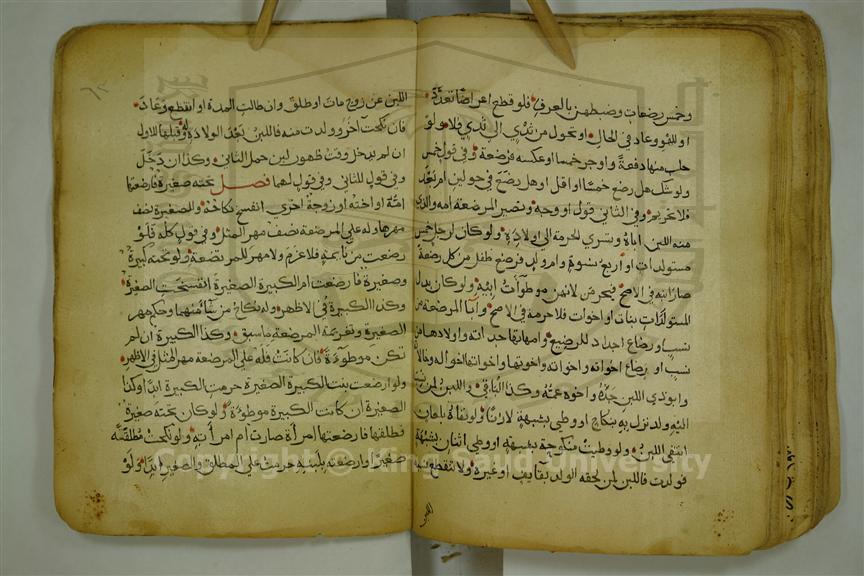 وخمس رضعات وضبطهن بالعرف فلو قطع اعراضا تعدد
او للهو وعاد في الحال او تحول من ثدي الى ثدي فلا ولو
حلب منها دفعة واوجر خمسا او عكسه فرضعة وفي قول خمس
ولو شك هل رضع خمسا او اقل او هل رضع في حولين ام بعد
فلا تحريم وفي الثاني قول او وجه وتصير المرضعة امه والذي
منه اللبن اباه وتسري الحرمة الى اولاده ولو كان لرجل خمس
مستولدات او اربع نسوة وام ولد فرضع طفل من كل رضعة
صار ابنه في الاصح فيحرمن لانهن موطوآت ابيه ولو كان بدل
المستولدات بنات او اخوات فلا حرمة في الاصح وآبا المرضعة من
نسب او رضاع اجداد للرضيع وامهاتها جداته واولادها من
نسب او رضاع اخوته واخواته واخوتها واخواتها اخواله وخالاته
وابو ذي اللبن جده واخوه عمه وكذا الباقي واللبن لمن نسب
اليه ولد نزل به بنكاح او وطي بشبهة لا زنا ولو نفاه بلعان
انتفى اللبن ولو وطيت منكوحة بشبهة او وطي اثنان بشبهة
فولدت فاللبن لمن لحقه الولد بقايف او غيره ولا تنقطع نسبة
اللبن
اللبن عن زوج مات او طلق وان طالت المدة او انقطع وعاد
فان نكحت آخر وولدت منه فاللبن بعد الولادة له وقبلها للاول
ان لم يدخل وقت ظهور لبن حمل الثاني وكذا ان دخل
وفي قول للثاني وفي قول لهما فصل تحته صغيرة فارضعتها
امه او اخته او زوجة اخرى انفسخ نكاحه وللصغيرة نصف
مهرها وله على المرضعة نصف مهر المثل وفي قول كله فلو
رضعت من نايمة فلا غرم ولا مهر للمرتضعة ولو تحته كبيرة
وصغيرة فارضعت ام الكبيرة الصغيرة انفسخت الصغيرة
وكذا الكبيرة في الاظهر وله نكاح من شا منهما وحكم مهر
الصغيرة وتغريمه المرضعة ما سبق وكذا الكبيرة ان لم
تكن موطوءة فان كانت فله على المرضعة مهر المثل في الاظهر
ولو ارضعت بنت الكبيرة الصغيرة حرمت الكبيرة ابدا وكذا
الصغيرة ان كانت الكبيرة موطوءة ولو كان تحته صغيرة
فطلقها فارضعتها امرأة صارت ام امرأته ولو نكحت مطلقته
صغيرا وارضعته بلبنه حرمت على المطلق والصغير ابدا ولو
Copyright © King Saud University